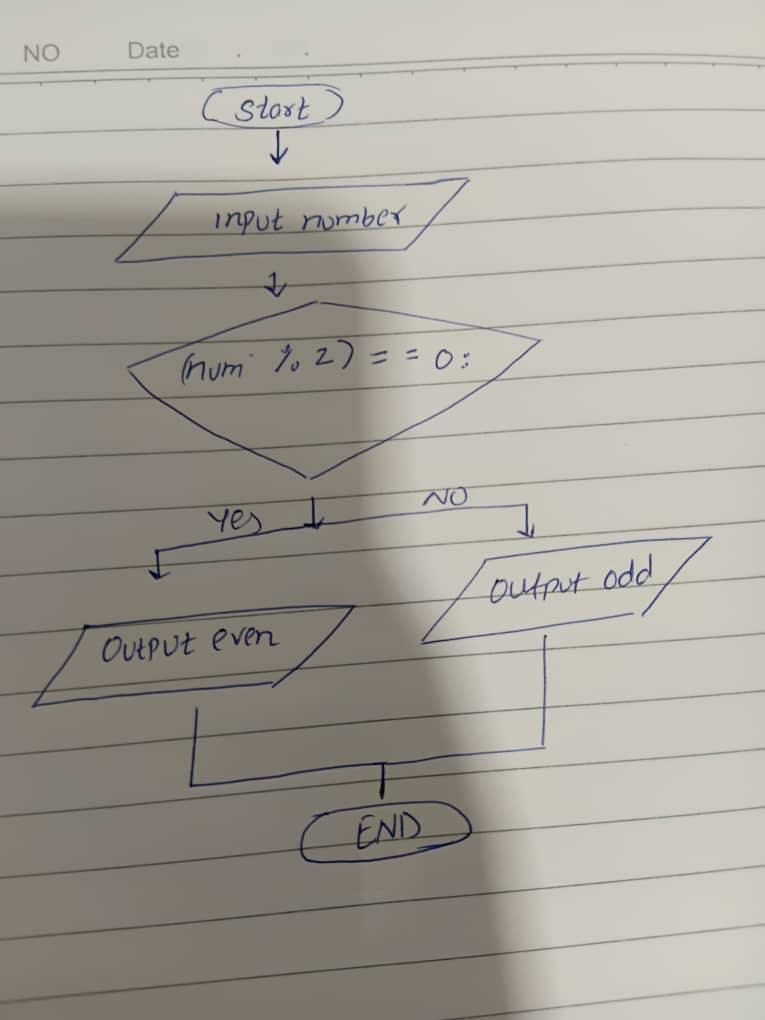 NO Date
Start
input number
(num % 2) == 0:
Yes NO
Output odd
Output even
END